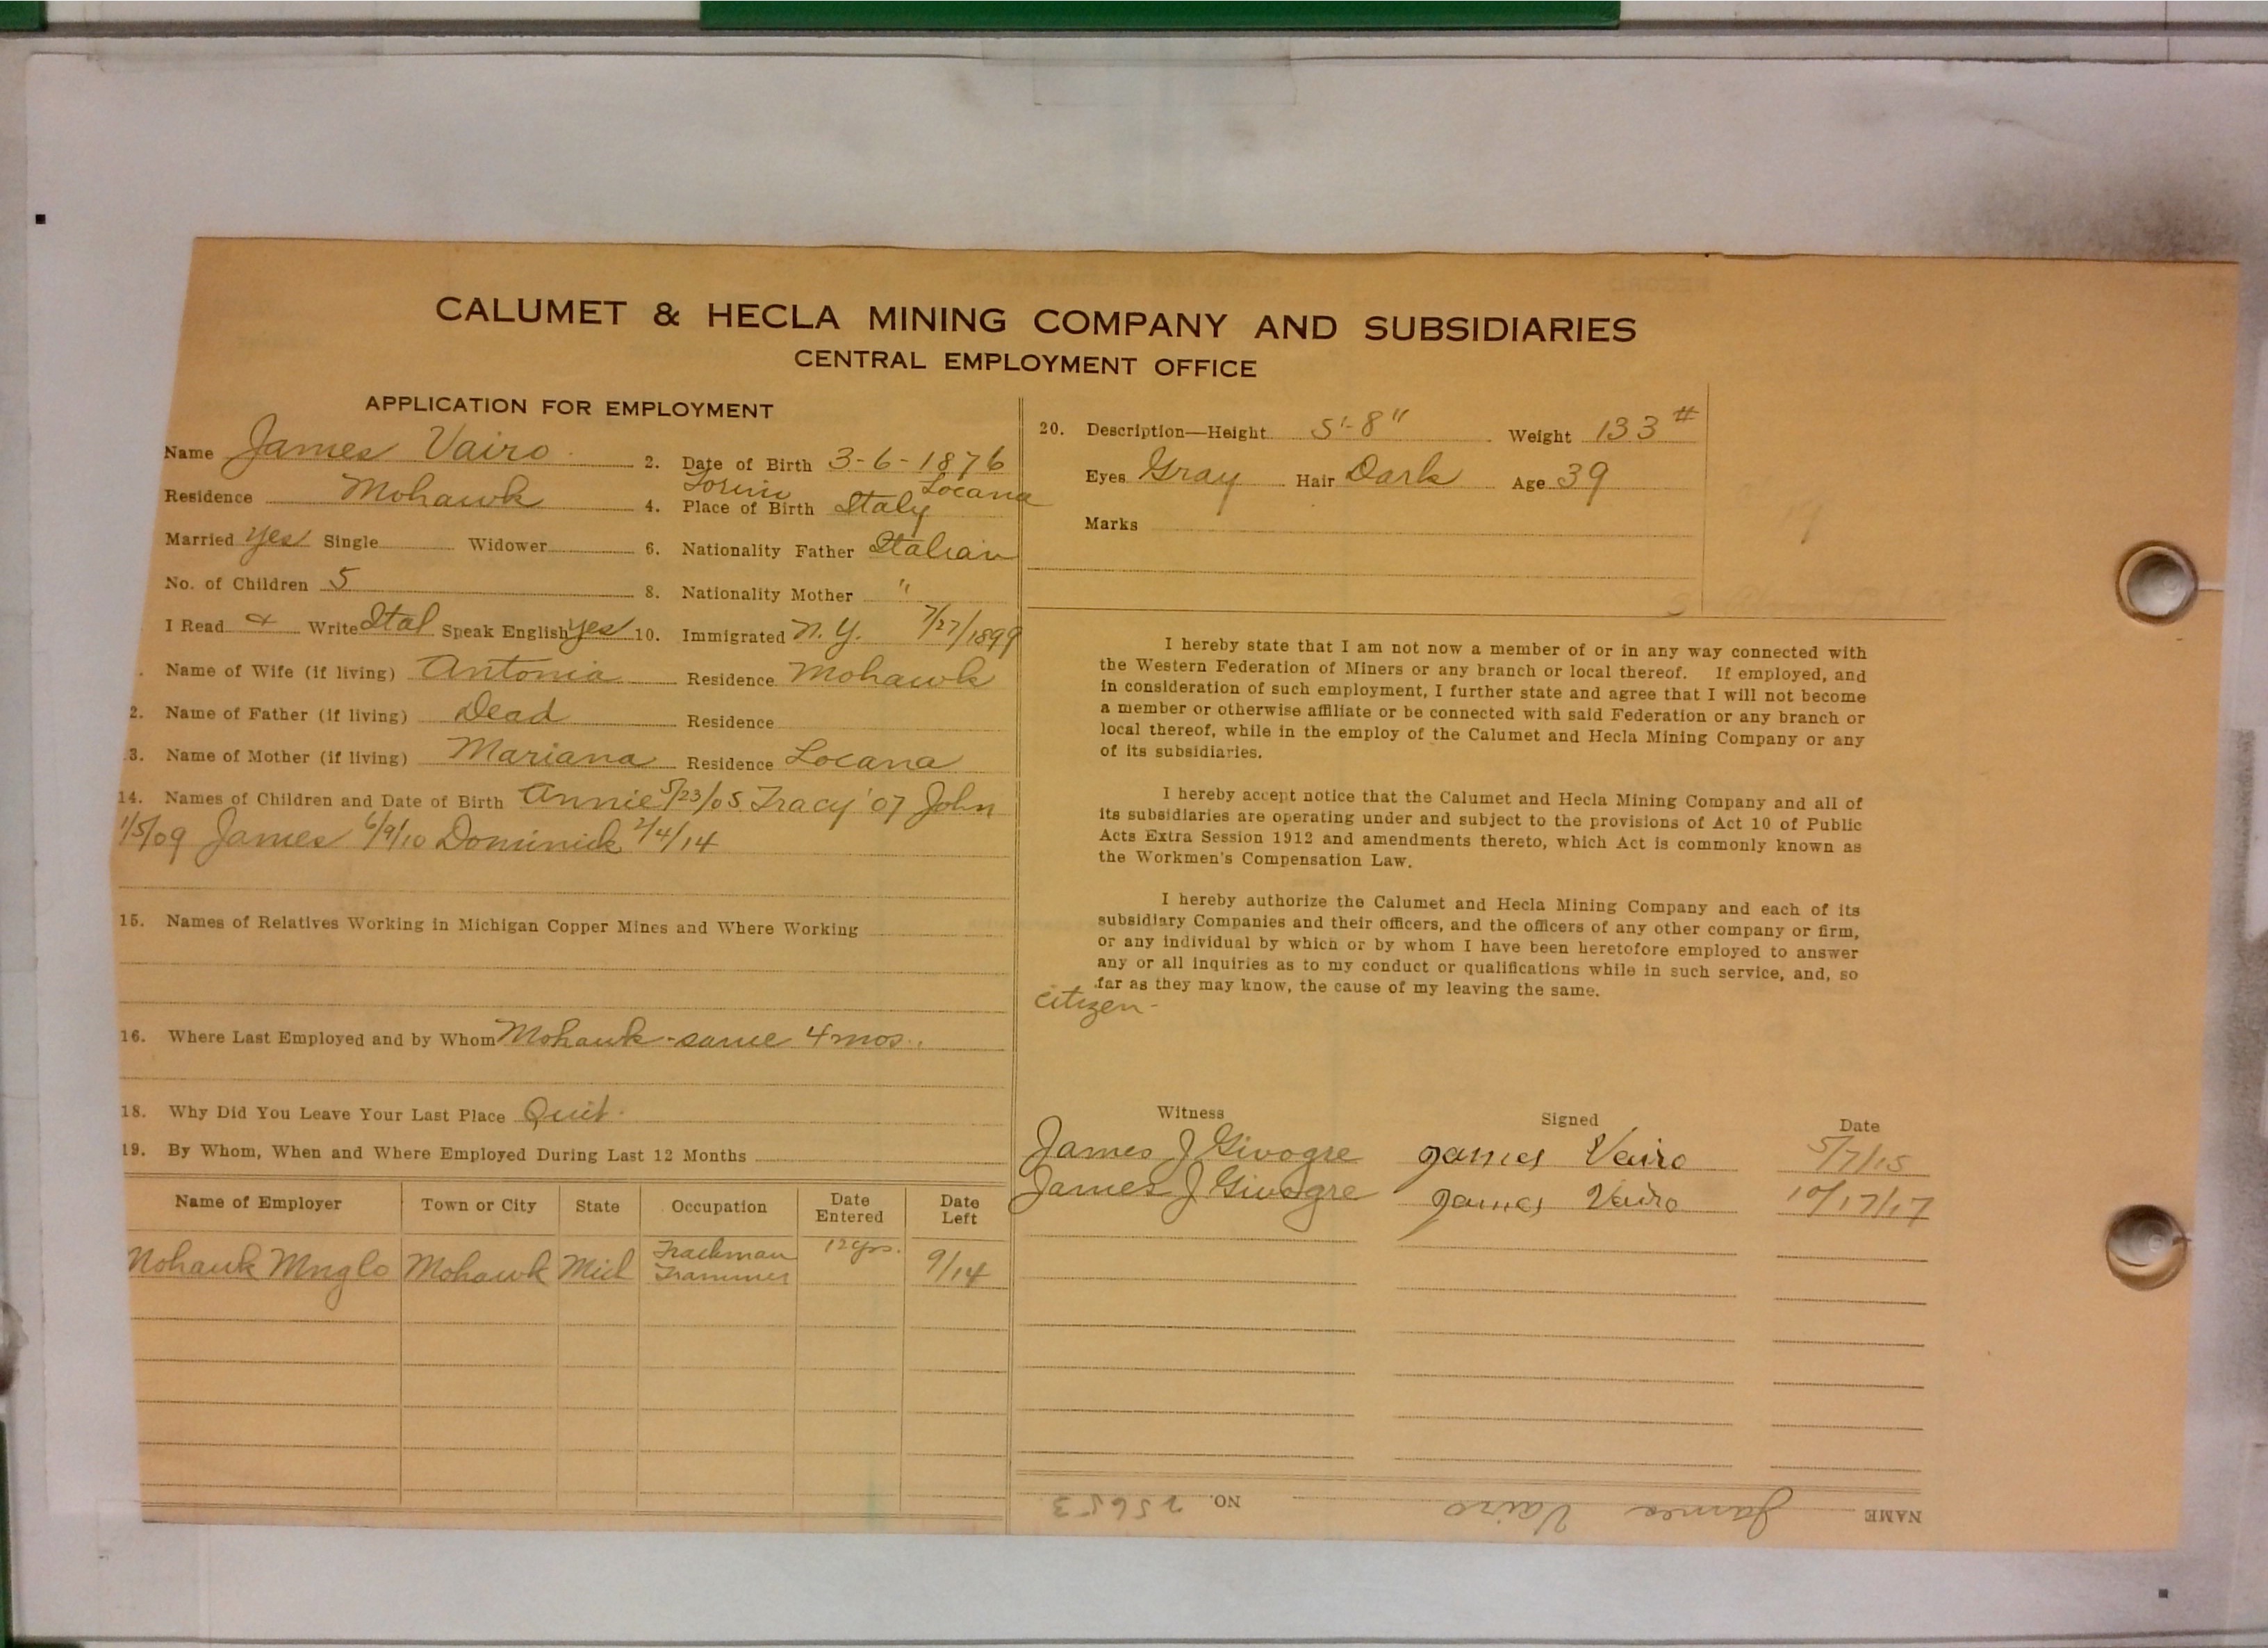 CALUMET & HECLA MINING COMPANY AND SUBSIDIARIES
CENTRAL EMPLOYMENT OFFICE
APPLICATION FOR EMPLOYMENT
Name James Vairo 2. Date of Birth 3-6-1876
Torino Locana
Residence Mohawk 4. Place of Birth Italy
Married yes Single Widower 6. Nationality Father Italian
No. of Children 5 8. Nationality Mother "
I Read & Write Ital Speak English yes 10. Immigrated N.Y. 7/27/1899
. Name of Wife (if living) Antonia Residence Mohawk
2. Name of Father (if living) Dead Residence
3. Name of Mother (if living) Mariana Residence Locana
14. Names of Children and Date of Birth Annie 5/23/05 Tracy '07 John
1/5/09 James 6/9/10 Dominick 2/4/14
15. Names of Relatives Working in Michigan Copper Mines and Where Working
16. Where Last Employed and by Whom Mohawk - same 4 mos.
18. Why Did You Leave Your Last Place Quit.
19. By Whom, When and Where Employed During Last 12 Months
Name of Employer Town or City State Occupation Date Entered Date Left
Trackman 12 yrs.
Mohawk Mng Co Mohawk Mich Trammer 9/14
20. Description—Height 5'-8" Weight 133 #
Eyes Gray Hair Dark Age 39
Marks
I hereby state that I am not now a member of or in any way connected with
the Western Federation of Miners or any branch or local thereof. If employed, and
in consideration of such employment, I further state and agree that I will not become
a member or otherwise affiliate or be connected with said Federation or any branch or
local thereof, while in the employ of the Calumet and Hecla Mining Company or any
of its subsidiaries.
I hereby accept notice that the Calumet and Hecla Mining Company and all of
its subsidiaries are operating under and subject to the provisions of Act 10 of Public
Acts Extra Session 1912 and amendments thereto, which Act is commonly known as
the Workmen's Compensation Law.
I hereby authorize the Calumet and Hecla Mining Company and each of its
subsidiary Companies and their officers, and the officers of any other company or firm,
or any individual by which or by whom I have been heretofore employed to answer
any or all inquiries as to my conduct or qualifications while in such service, and, so
far as they may know, the cause of my leaving the same.
Citizen -
Witness Signed Date
James J Givogre James Vairo 5/7/15
James J Givogre James Vairo 10/17/17
NAME James Vairo NO. 25653